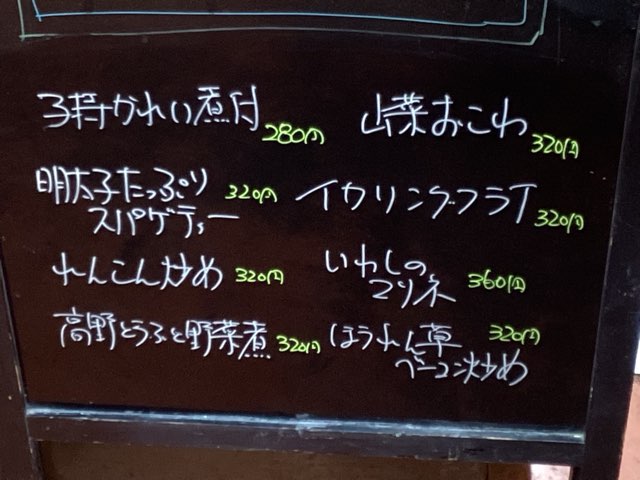 子持かれい煮付 280円
明太子たっぷり 320円
スパゲティー
れんこん炒め 320円
高野とうふと野菜煮 320円
山菜おこわ 320円
イカリングフライ 320円
いわしの
マリネ 360円
ほうれん草 320円
ベーコン炒め